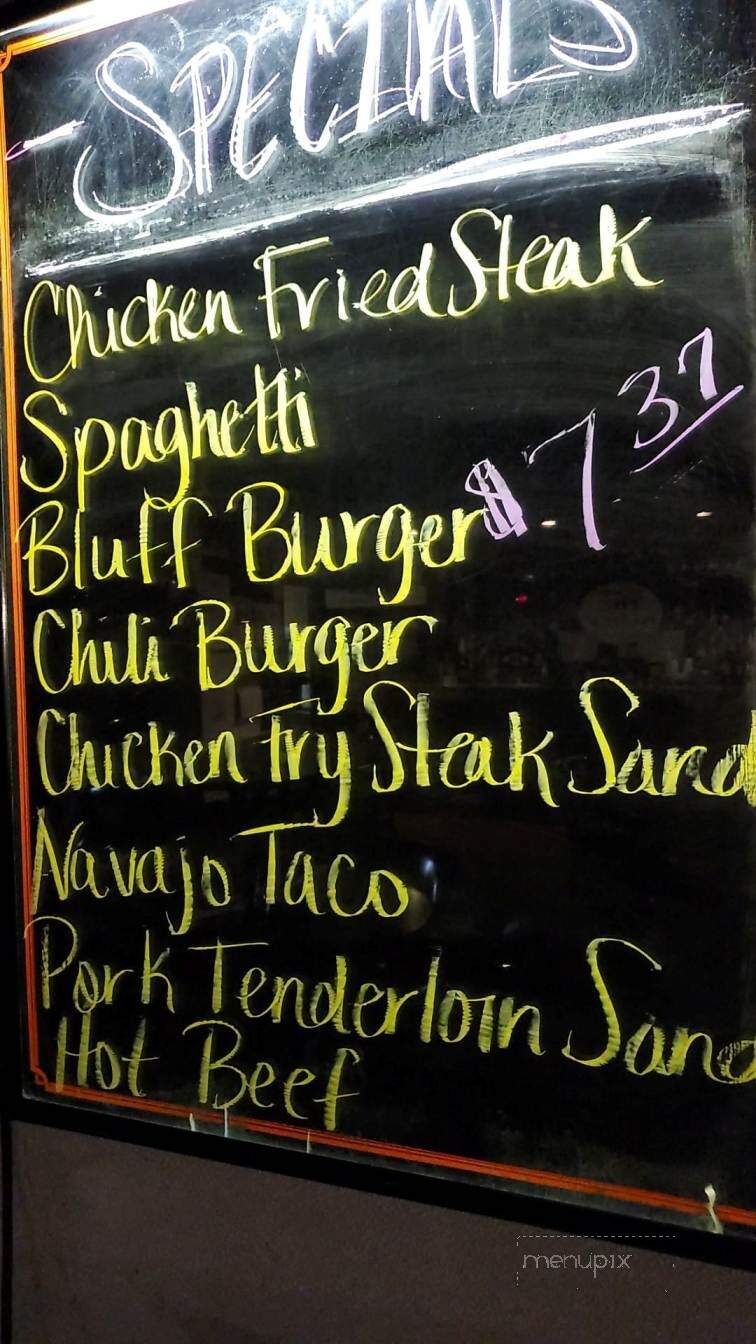 SPECIALS
Chicken Fried Steak
Spaghetti
$7 37
Bluff Burger
Chili Burger
Chicken Fry Steak Sand
Navajo Taco
Pork Tenderloin Sand
Hot Beef
menupix